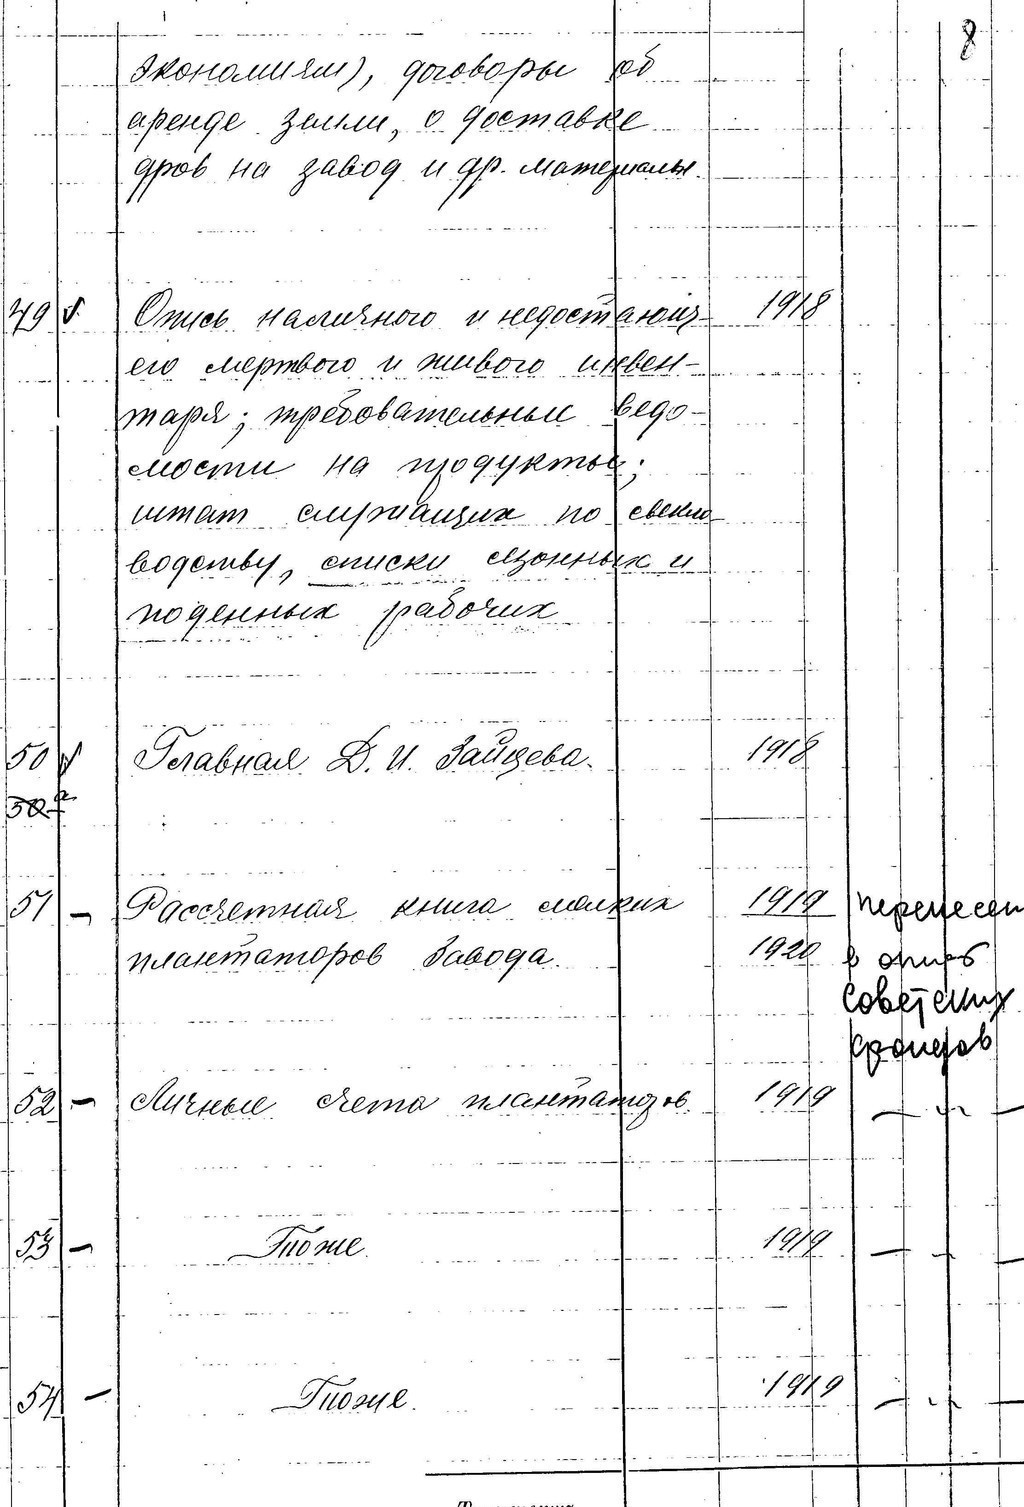 8
экономиям), договоры об
аренде земли, о доставке
дров на завод и др. материалы.
49 v Опись наличного и недостающ- 1918
его мертвого и живого инвен-
таря; требовательные ведо-
мости на продукты;
штат служащих по свекло-
водству, списки сезонных и
поденных рабочих
50 v Главная Д. И. Зайцева. 1918
50 а
51 – Рассчетная книга мелких 1919 перенесен
плантаторов завода. 1920 в опись
советских
фондов
52 – Личные счета плантаторов 1919 — " —
53 – Тоже. 1919 — " —
54 – Тоже. 1919 — " —